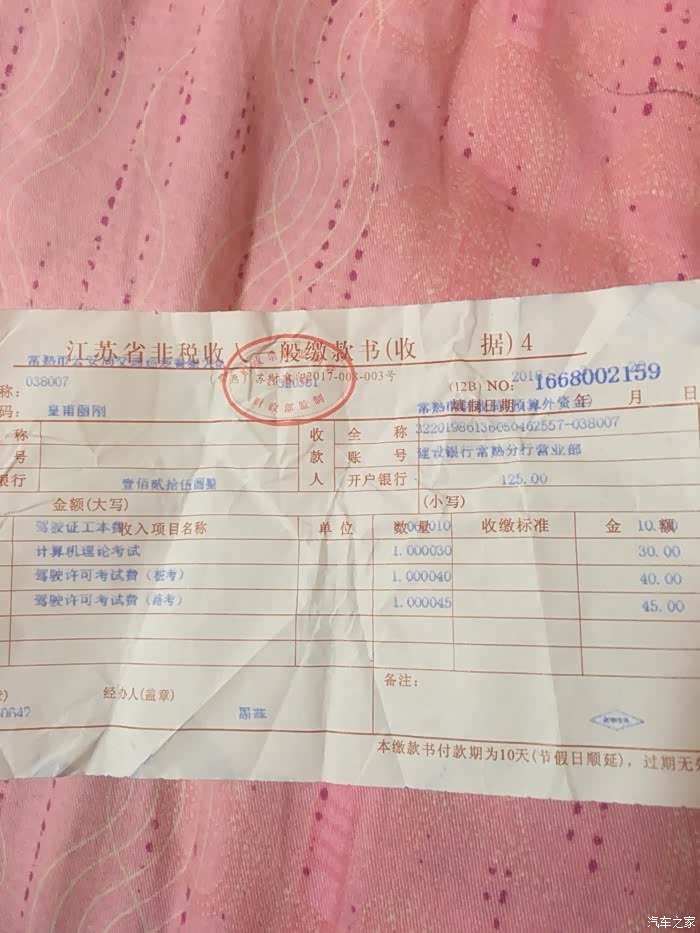 江苏省非税收入一般缴款书(收 据)4
常熟市公安局交通
(常熟) 苏财 02017-008-003号
038007
(12B) NO: 1668002159
称:
填制日期: 年 月 日
码: 皇甫丽刚
称 收 全 称 32201986136050462557-038007
号 款 账 号 建设银行常熟分行营业部
银行 壹佰贰拾伍圆整 人 开户银行 125.00
金额(大写) (小写)
驾驶证工本费 收入项目名称 单位 数量 收缴标准 金 额 10.00
计算机理论考试 1.000030 30.00
驾驶许可考试费(桩考) 1.000040 40.00
驾驶许可考试费(路考) 1.000045 45.00
财政部监制
备注:
经办人(盖章)
0642
本缴款书付款期为10天(节假日顺延), 过期无
汽车之家